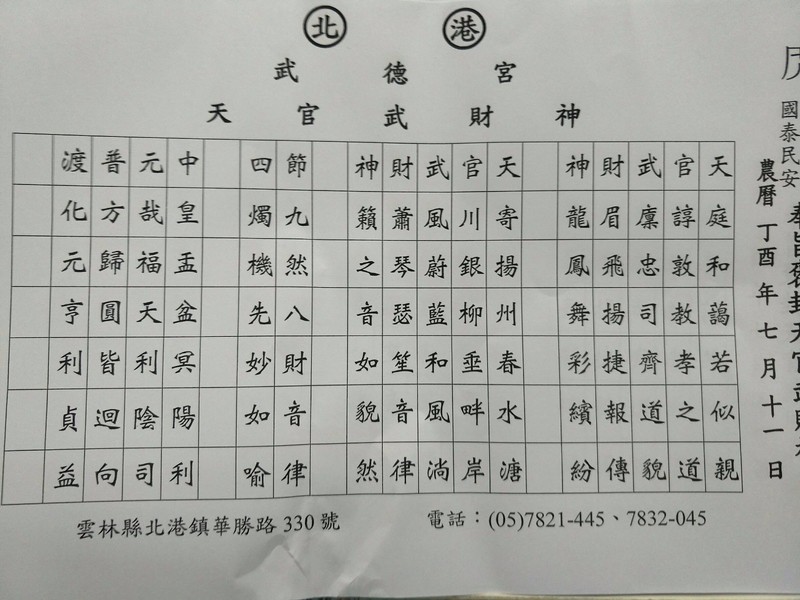 北港
武德宮
天官武財神
國泰民安
奉旨褒封天官武財
農曆丁酉年七月十一日
天庭和藹若似親
官諄敦教孝之道
武廩忠司齊道貌
財眉飛揚捷報傳
神龍鳳舞彩繽紛
天寄揚州春水溏
官川銀柳垂畔岸
武風蔚藍和風淌
財蕭琴瑟笙音律
神籟之音如貌然
節九然八財音律
四燭機先妙如喻
中皇盂盆冥陽利
元哉福天利陰司
普方歸圓皆迴向
渡化元亨利貞益
雲林縣北港鎮華勝路 330 號
電話：(05)7821-445、7832-045